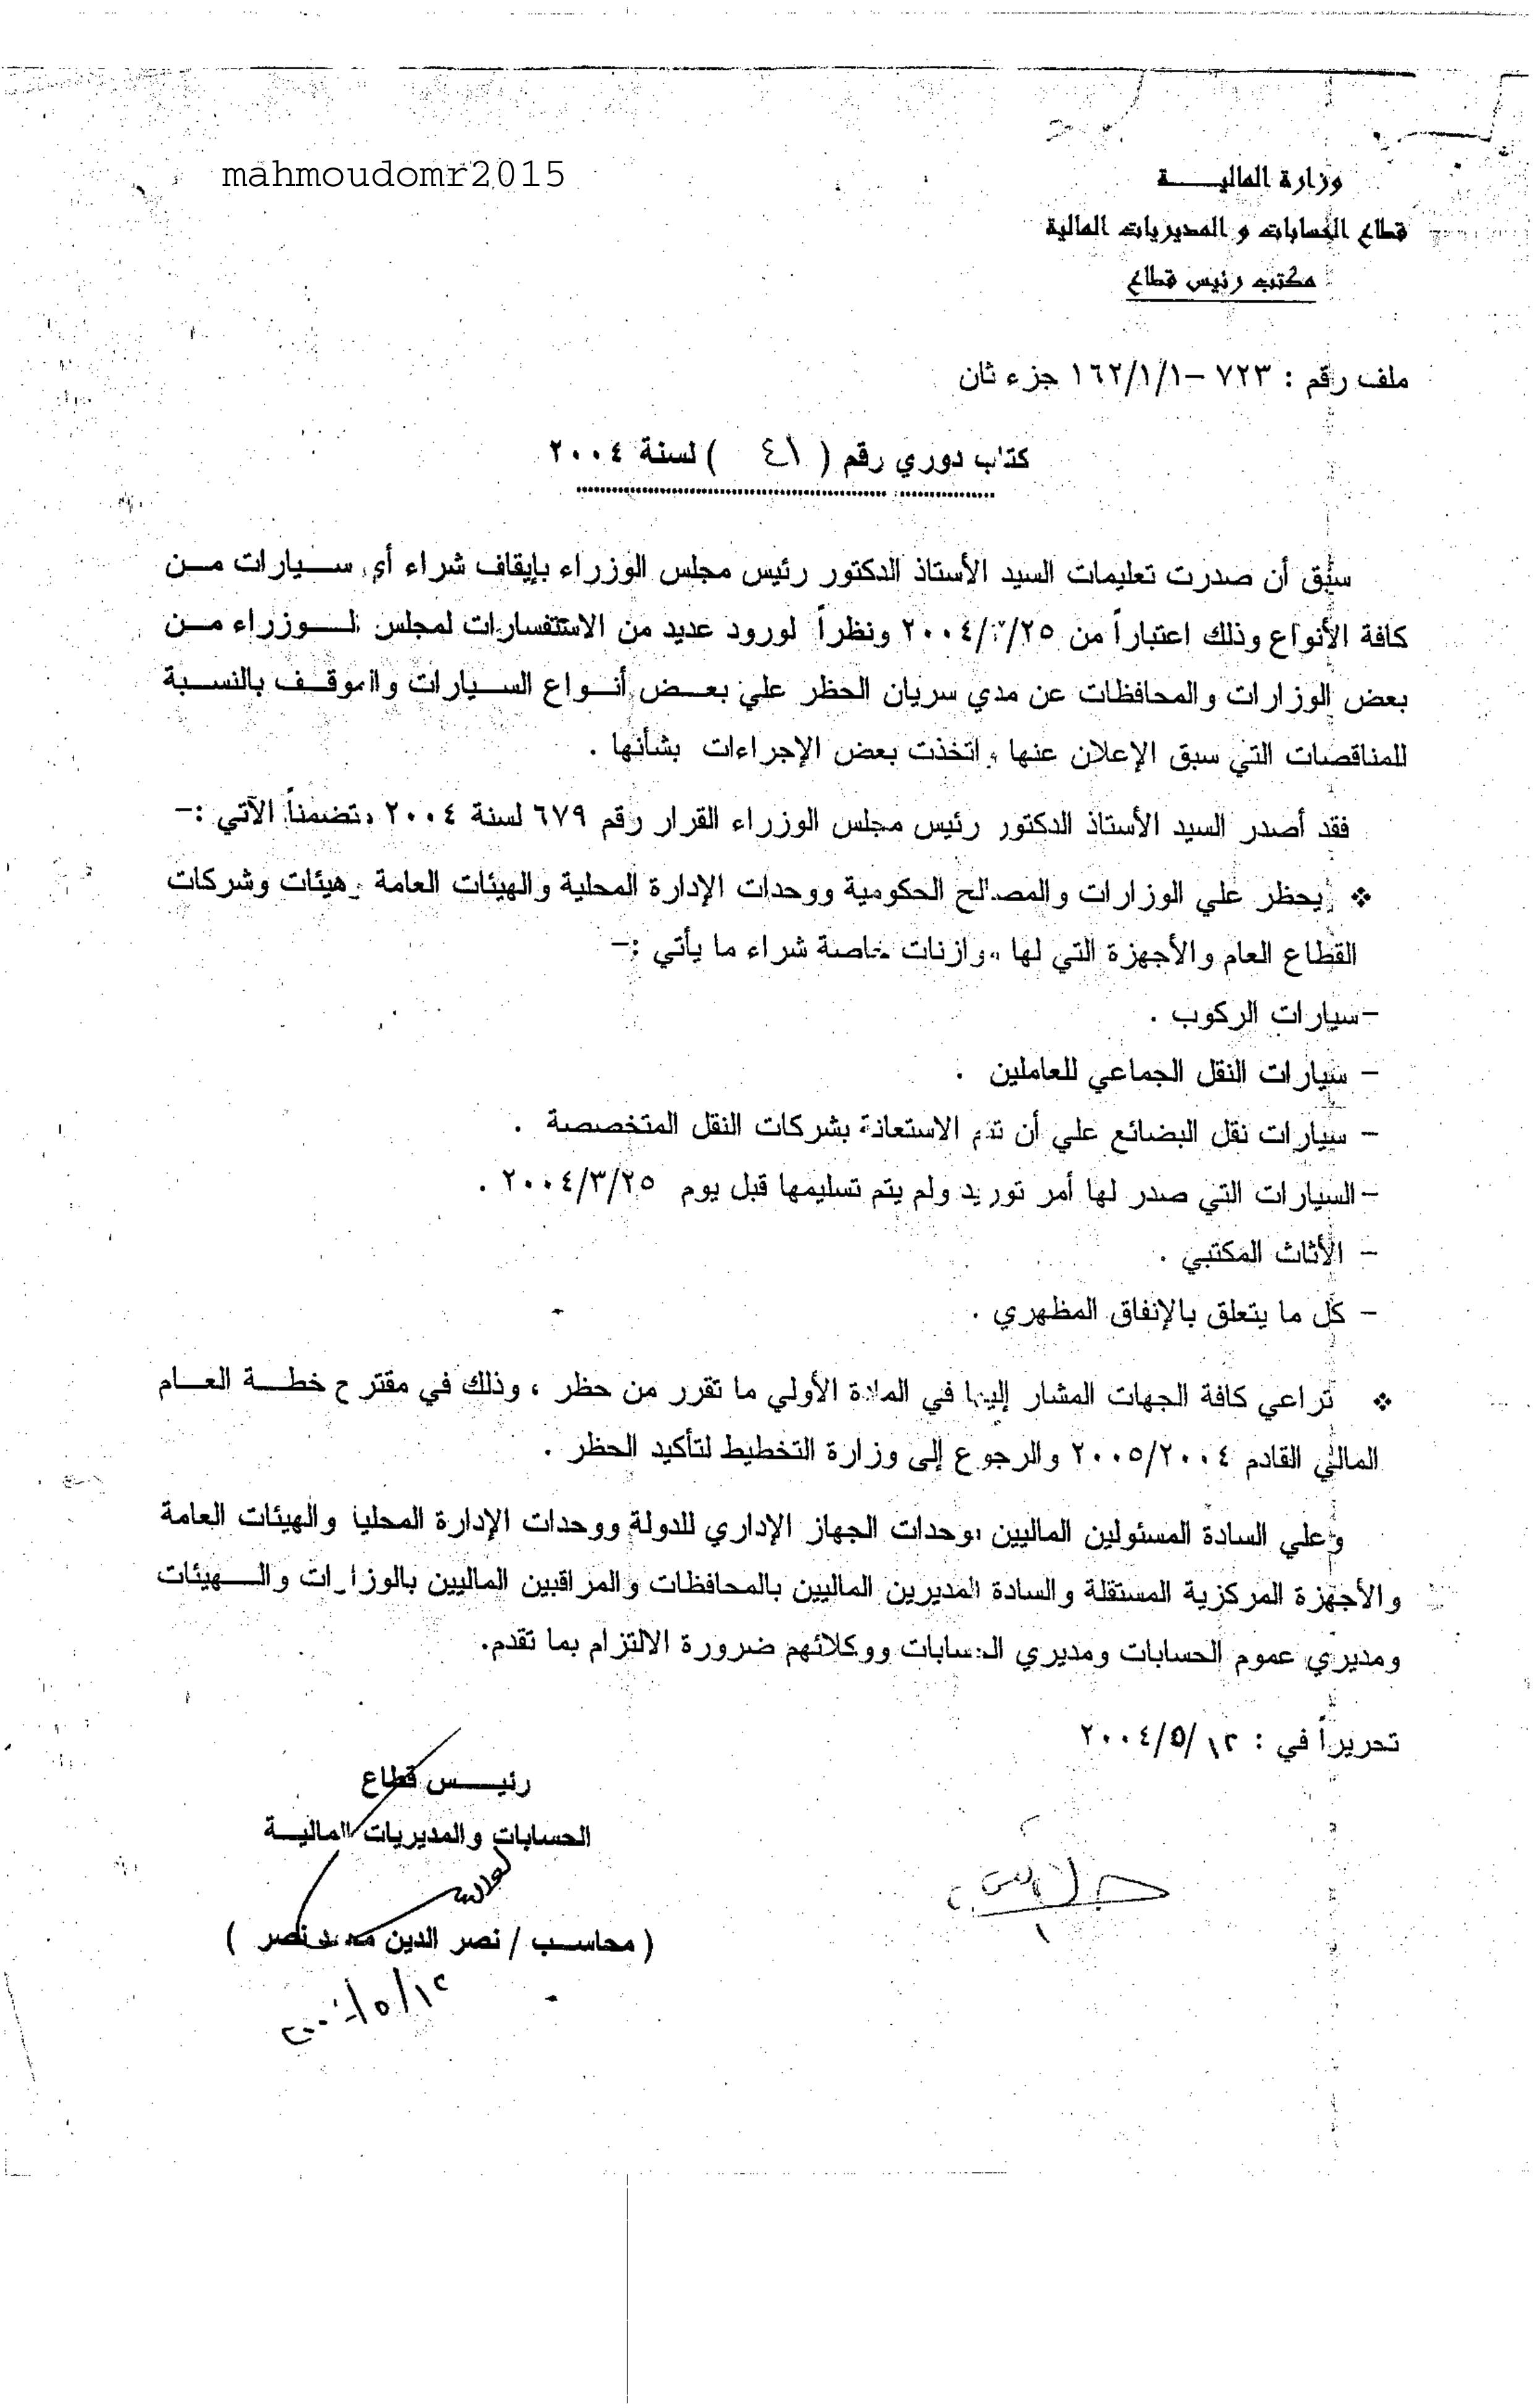 mahmoudomr2015
وزارة الماليـــــة
قطاع الحسابات و المديريات المالية
مكتب رئيس قطاع
ملف رقم : ٧٢٣ – ١٦٢/١/١ جزء ثان
كتاب دوري رقم ( ٤١ ) لسنة ٢٠٠٤
سبق أن صدرت تعليمات السيد الأستاذ الدكتور رئيس مجلس الوزراء بإيقاف شراء أي سـيارات مـن
كافة الأنواع وذلك اعتباراً من ٢٠٠٤/٣/٢٥ ونظراً لورود عديد من الاستفسارات لمجلس الـوزراء مـن
بعض الوزارات والمحافظات عن مدي سريان الحظر علي بعـض أنـواع السـيارات والموقـف بالنسـبة
للمناقصات التي سبق الإعلان عنها واتخذت بعض الإجراءات بشأنها .
فقد أصدر السيد الأستاذ الدكتور رئيس مجلس الوزراء القرار رقم ٦٧٩ لسنة ٢٠٠٤ متضمناً الآتي :–
❖ يحظر علي الوزارات والمصالح الحكومية ووحدات الإدارة المحلية والهيئات العامة وهيئات وشركات
القطاع العام والأجهزة التي لها موازنات خاصة شراء ما يأتي :–
–سيارات الركوب .
– سيارات النقل الجماعي للعاملين .
– سيارات نقل البضائع علي أن تتم الاستعانة بشركات النقل المتخصصة .
– السيارات التي صدر لها أمر توريد ولم يتم تسليمها قبل يوم ٢٠٠٤/٣/٢٥ .
– الأثاث المكتبي .
– كل ما يتعلق بالإنفاق المظهري .
❖ تراعي كافة الجهات المشار إليها في المادة الأولي ما تقرر من حظر ، وذلك في مقترح خطـة العـام
المالي القادم ٢٠٠٥/٢٠٠٤ والرجوع إلى وزارة التخطيط لتأكيد الحظر .
وعلي السادة المسئولين الماليين بوحدات الجهاز الإداري للدولة ووحدات الإدارة المحلية والهيئات العامة
والأجهزة المركزية المستقلة والسادة المديرين الماليين بالمحافظات والمراقبين الماليين بالوزارات والـهيئات
ومديري عموم الحسابات ومديري الحسابات ووكلائهم ضرورة الالتزام بما تقدم.
تحريراً في : ١٢/٥/٢٠٠٤
رئيـــس قطاع
الحسابات والمديريات الماليـة
( محاسـب / نصر الدين محمد نصر )
٢٠٠٤/٥/١٢